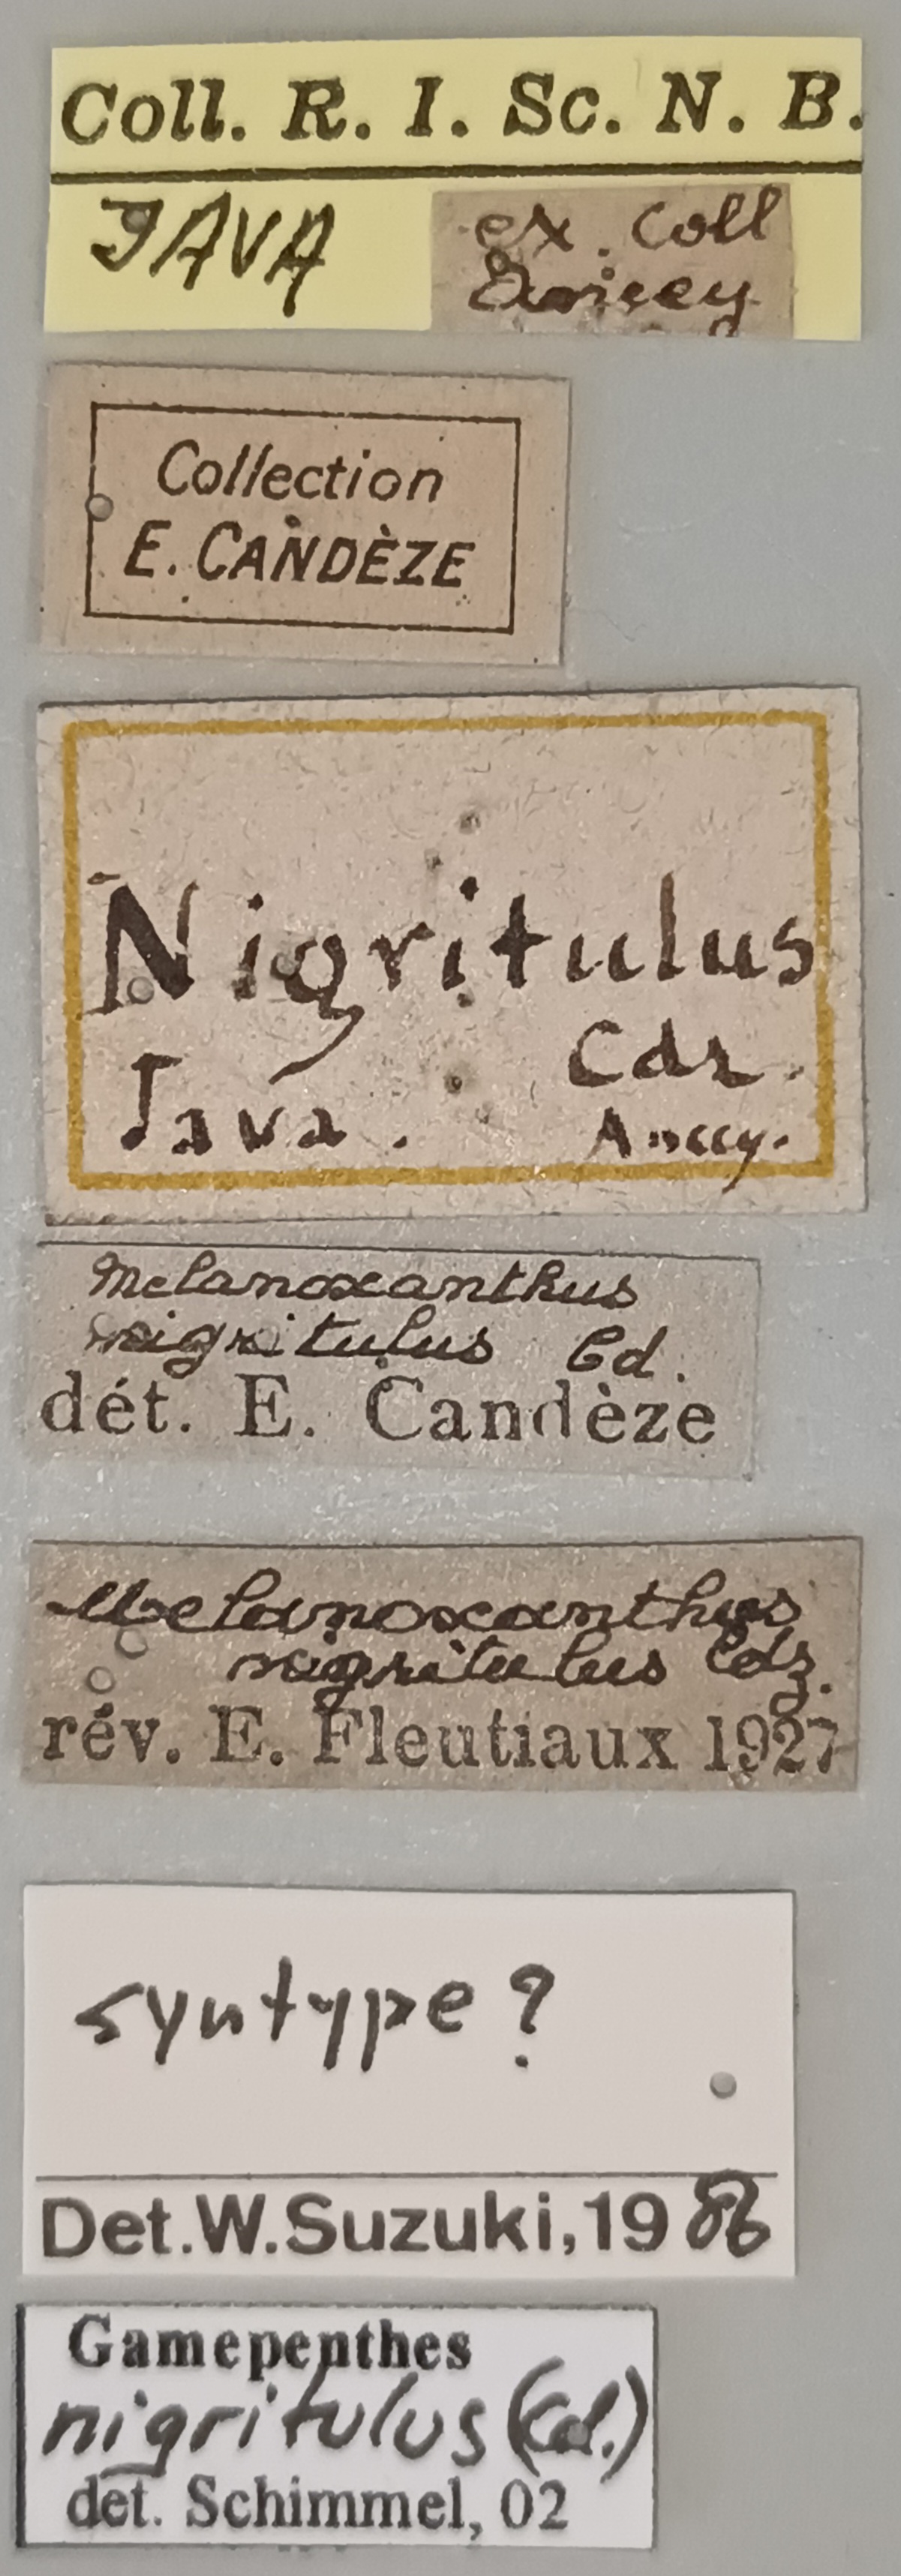 Coll. R. I. Sc. N. B.
JAVA
ex. Coll
Collection
E. CANDÈZE
Nigritulus
Cdz.
Java.
Melanoxanthus
nigritulus Cd.
dét. E. Candèze
Melanoxanthus
nigritulus Cdz.
rév. E. Fleutiaux 1927
syntype?
Det.W.Suzuki,1986
Gamepenthes
nigritulus (Cd.)
det. Schimmel, 02